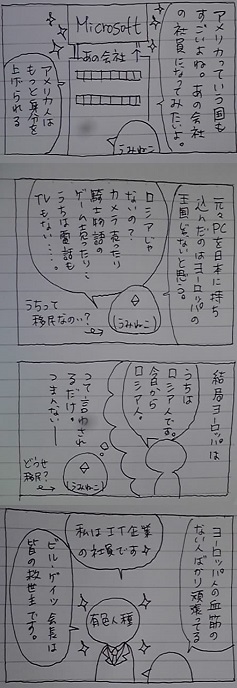 アメリカっていう国も
すごいよね。あの会社
の社員になってみたいよ。
Microsoft
あの会社↑
うみねこ
アメリカ人は
もっと身分を
上げられる
元々PCを日本に持ち
込んだのはヨーロッパの
王国じゃないと思う。
ロシアじゃ
ないの?
カメラ売ったり
騎士物語の
ゲーム売ったり‥
うちは電話も
TVもない‥‥。
うちって
移民なのい?
うみねこ
結局ヨーロッパは
うちは
ロシア人です。
今日から
ロシア人。
って言われ
るだけ。
つまんない―
どうせ
移民?
うみねこ
ヨーロッパ人の血筋の
ない人ばかり頑張ってる
私はIT企業
の社員です☆
有色人種
ビル・ゲイツ会長は
皆の救世主です。